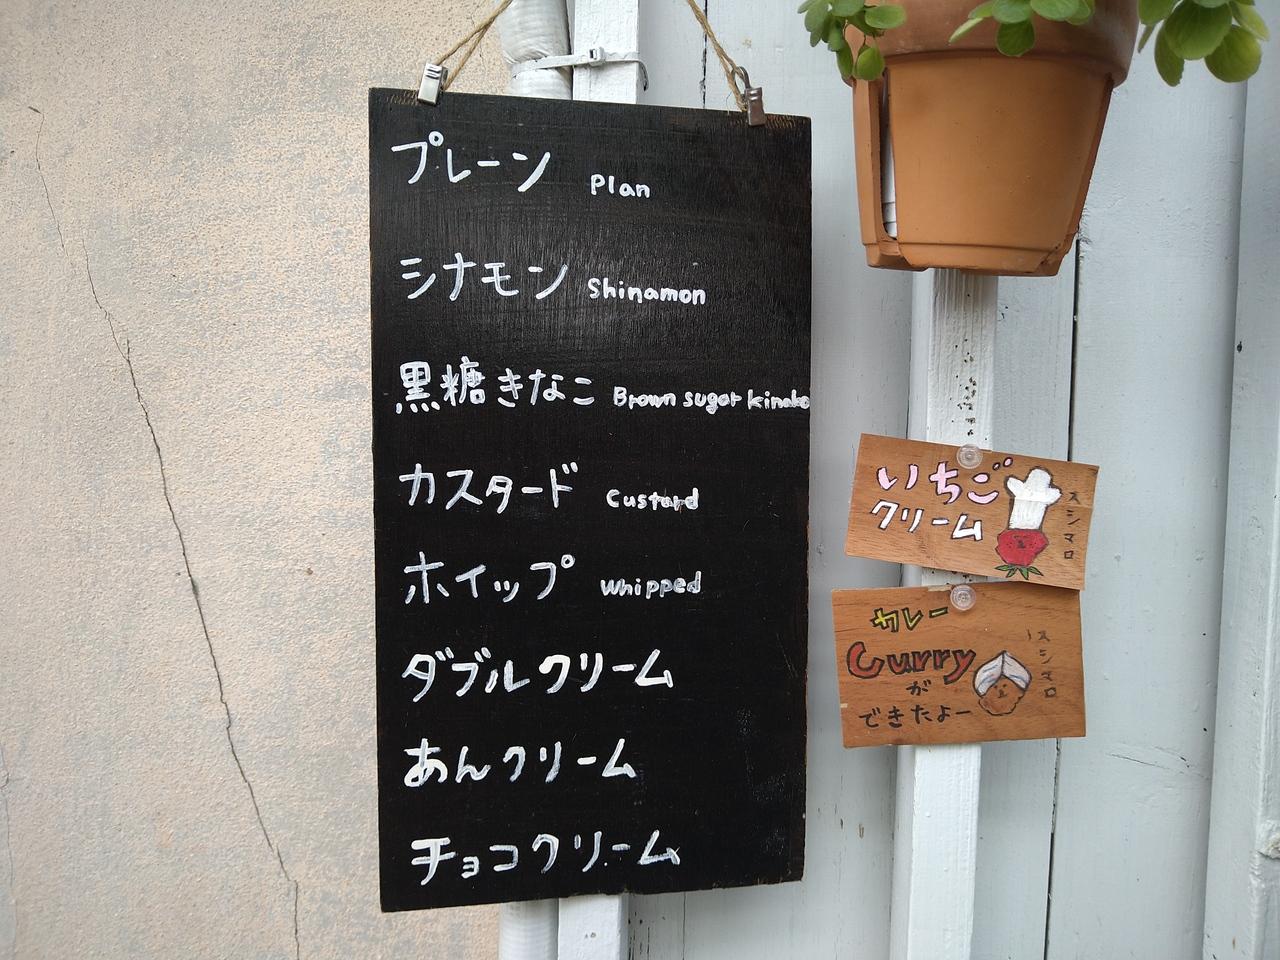 プレーン Plan
シナモン Shinamon
黒糖きなこ Brown sugar kinako
カスタード Custard
ホイップ Whipped
ダブルクリーム
あんクリーム
チョコクリーム
いちご
クリーム
スシマロ
カレー
Curry
が
できたよー
スシマロ